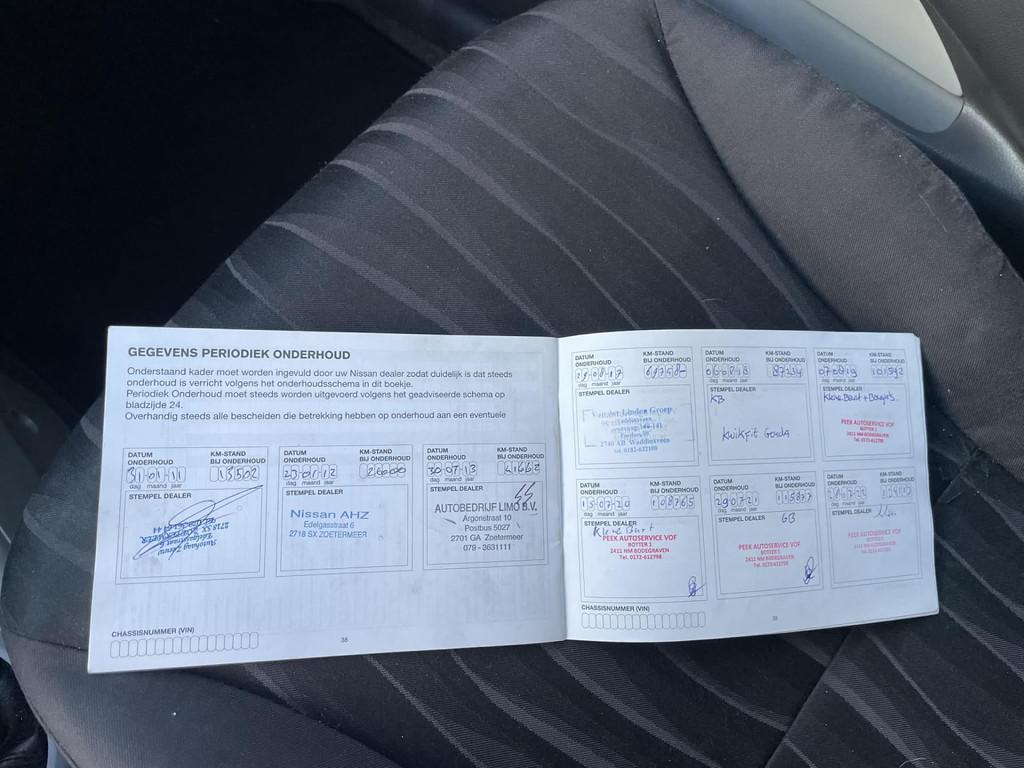 GEGEVENS PERIODIEK ONDERHOUD
Onderstaand kader moet worden ingevuld door uw Nissan dealer zodat duidelijk is dat steeds
onderhoud is verricht volgens het onderhoudsschema in dit boekje.
Periodiek Onderhoud moet steeds worden uitgevoerd volgens het geadviseerde schema op
bladzijde 24.
Overhandig steeds alle bescheiden die betrekking hebben op onderhoud aan een eventuele
DATUM ONDERHOUD KM-STAND BIJ ONDERHOUD
31 01 11 13502
dag maand jaar
STEMPEL DEALER
2718 SX
DATUM ONDERHOUD KM-STAND BIJ ONDERHOUD
23 01 12
dag maand jaar
STEMPEL DEALER
Nissan AHZ
Edelgasstraat 6
2718 SX ZOETERMEER
DATUM ONDERHOUD KM-STAND BIJ ONDERHOUD
30 07 13 41662
dag maand jaar
STEMPEL DEALER
AUTOBEDRIJF LIMO B.V.
Argonstraat 10
Postbus 5027
2701 GA Zoetermeer
079 - 3631111
CHASSISNUMMER (VIN)
38
DATUM ONDERHOUD KM-STAND BIJ ONDERHOUD
29 08 17 69758
dag maand jaar
STEMPEL DEALER
Linden Groep
2740 AH Waddinxveen
tel. 0182-632100
DATUM ONDERHOUD KM-STAND BIJ ONDERHOUD
06 08 18 87234
dag maand jaar
STEMPEL DEALER
KB
KwikFit Gouda
DATUM ONDERHOUD KM-STAND BIJ ONDERHOUD
07 08 19 101592
dag maand jaar
STEMPEL DEALER
Kleine Beurt + Bougies
PEEK AUTOSERVICE VOF
BOTTER 1
2411 NM BODEGRAVEN
Tel. 0172-612798
DATUM ONDERHOUD KM-STAND BIJ ONDERHOUD
15 07 20 108765
dag maand jaar
STEMPEL DEALER
PEEK AUTOSERVICE VOF
BOTTER 1
2411 NM BODEGRAVEN
Tel. 0172-612798
DATUM ONDERHOUD KM-STAND BIJ ONDERHOUD
29 07 21 115877
dag maand jaar
STEMPEL DEALER
GB
PEEK AUTOSERVICE VOF
BOTTER 1
2411 NM BODEGRAVEN
Tel. 0172-612798
DATUM ONDERHOUD KM-STAND BIJ ONDERHOUD
dag maand jaar
STEMPEL DEALER
PEEK AUTOSERVICE VOF
BOTTER 1
2411 NM BODEGRAVEN
Tel. 0172-612798
CHASSISNUMMER (VIN)
39